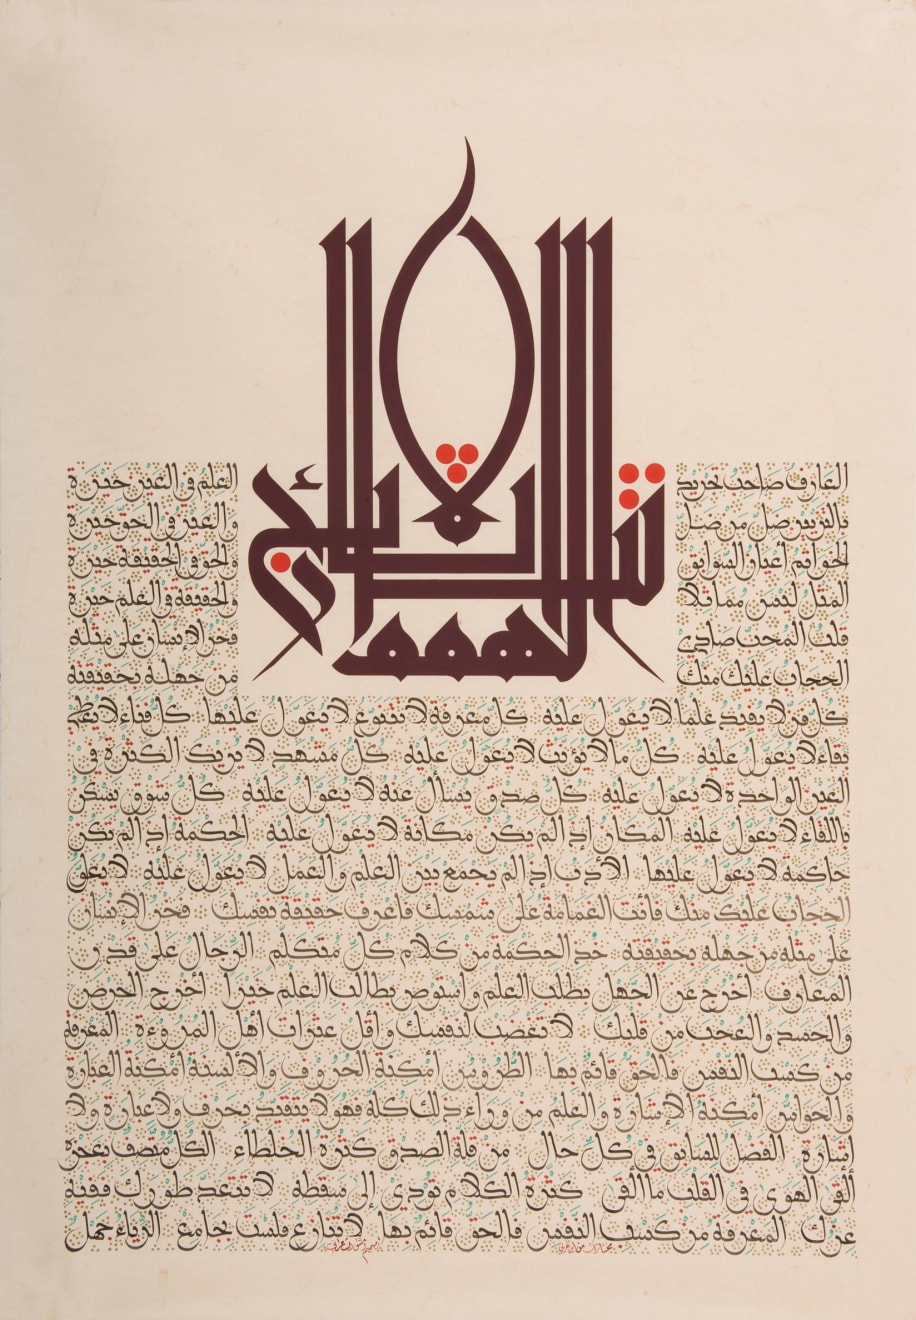 العارف صاحب تجريد
بالتزيين ضل من ضل
الخواتم أعيان السوابق
قلب المحب صادئ
الحجاب عليك منك
العلم في العين حيرة
والعين في الحق حيرة
والحق في الحقيقة حيرة
والحقيقة في العلم حيرة
فخر الإنسان على مثله
من جهله بحقيقته
كل فن لا يفيد علما لا يعول عليه كل معرفة لا تتنوع لا يعول عليها كل فناء لا يعطي
بقاء لا يعول عليه كل ما لا يؤنث لا يعول عليه كل مشهد لا يريك الكثرة في
العين الواحدة لا يعول عليه كل صدق يسأل عنه لا يعول عليه كل شوق يسكن
باللقاء لا يعول عليه المكان إذا لم يكن مكانة لا يعول عليه الحكمة إذا لم تكن
حاكمة لا يعول عليها الأدب إذا لم يجمع بين العلم والعمل لا يعول عليه
الحجاب عليك منك فأنت الغمامة على شمسك فاعرف حقيقة نفسك فخر الإنسان
على مثله من جهله بحقيقته خذ الحكمة من كلام كل متكلم الرجال على قدر
المعارف أخرج عن الجهل بطلب العلم واستوص بطالب العلم خيرا أخرج الحرص
والحسد والعجب من قلبك لا تغضب لنفسك وأقل عثرات أهل المروءة المعرفة
من كسب النفس فالحق قائم بها الطروس أمكنة الحروف والألسنة أمكنة العبارة
والحواس أمكنة الإشارة والعلم من وراء ذلك كله فهو لا يتقيد بحرف ولا عبارة ولا
إشارة الفضل للسابق في كل حال من قلة الصدق كثرة الخلطاء الكل متصف بعجز
ألقى الهوى في القلب ما ألقى كثرة الكلام تؤدي إلى سقطة لا تتعد طورك ففيه
عزك المعرفة من كسب النفس فالحق قائم بها لا تنازع فلست بجامع الرياء جهل